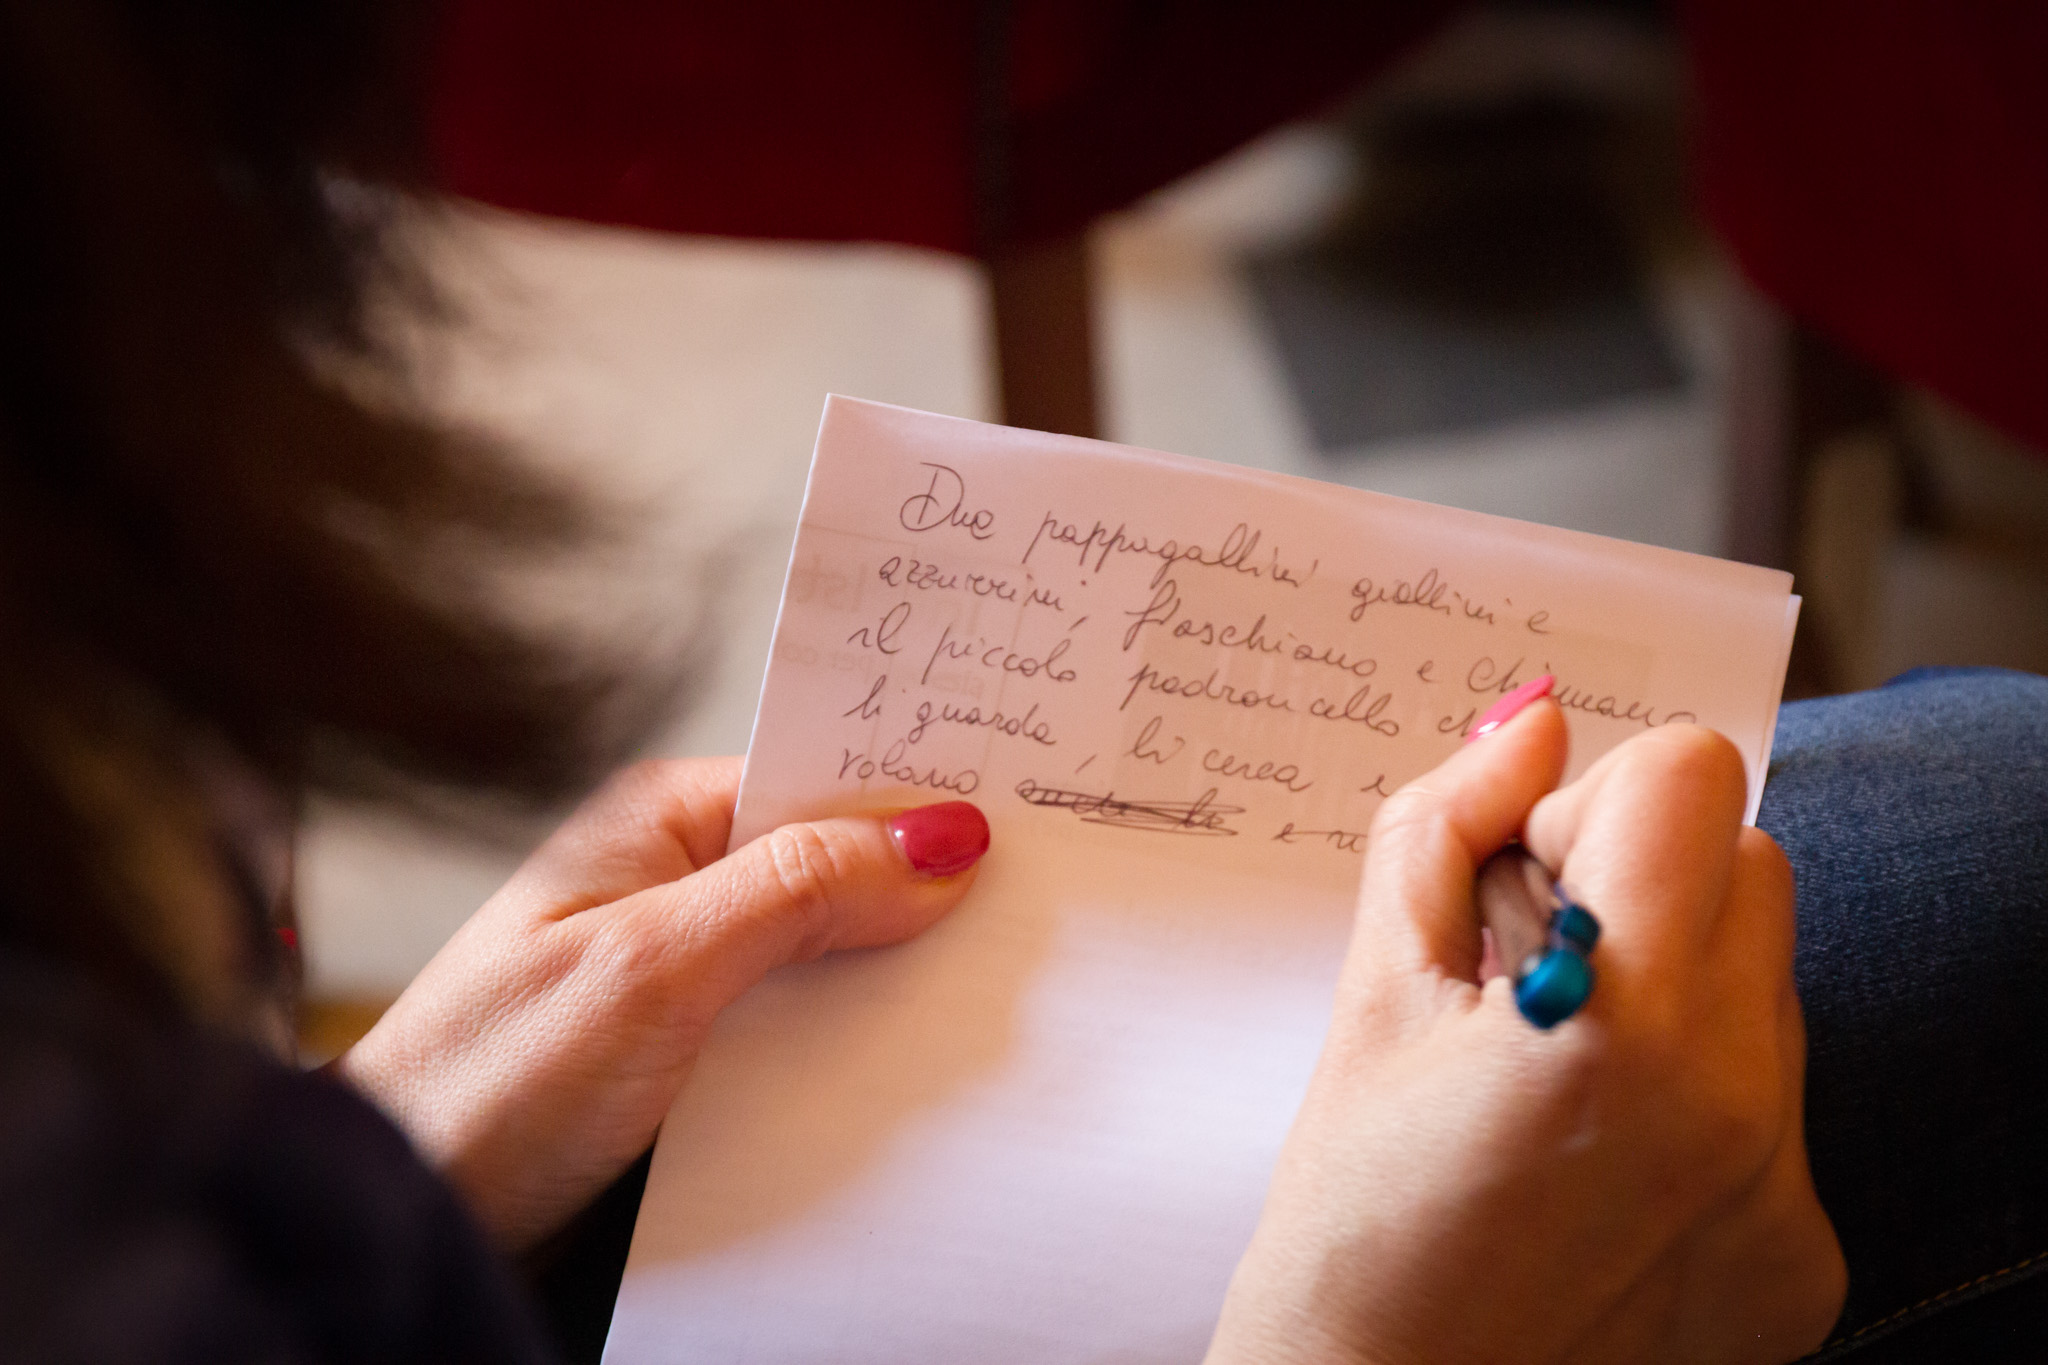 Due pappagallini giallini e
azzurrini, fischiano e chiamano
il piccolo padroncello
li guarda, li cerca e
volano e